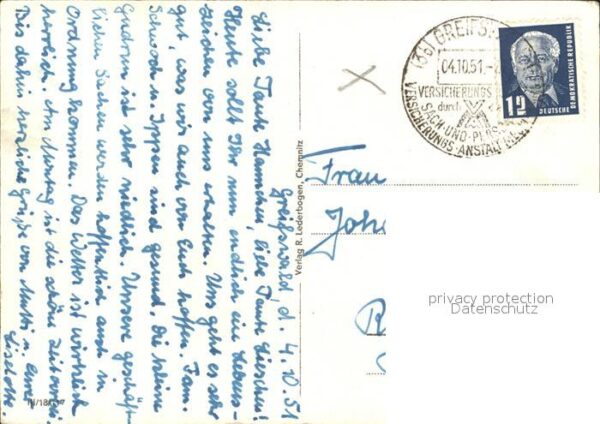 Greifswald, d. 4.10.51
Liebe Tante Hannchen, liebe Tante Lieschen!
Heute sollt Ihr nun endlich ein Lebens-
zeichen von uns erhalten. Uns geht es sehr
gut, was wir auch von Euch hoffen. Fam.
Schwoch u. Ippen sind gesund, die kleine
Gudrun ist sehr niedlich. Unsere geschäft-
lichen Sachen werden hoffentlich auch in
Ordnung kommen. Das Wetter ist wirklich
herrlich. Am Montag ist die schöne Zeit
Bis dahin herzliche Grüße von Mutti u. Eurer
Liselotte.
III/18/
Verlag R. Lederbogen, Chemnitz
(3b) GREIFS
04.10.51.-
VERSICHERUNGS
durch
SACH-UND-
VERSICHERUNGS-ANSTALT
12
DEUTSCHE DEMOKRATISCHE REPUBLIK
Frau
Joh
privacy protection
Datenschutz